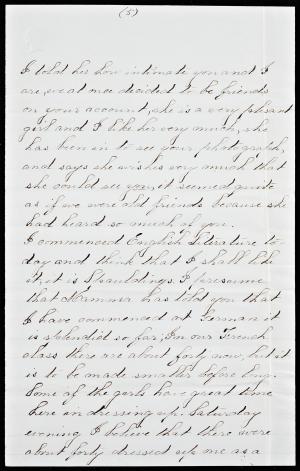 (5)
I told her how intimate you and I
are, we at once decided to be friends
on your account, she is a very pleasant
girl and I like her very much, she
has been in to see your photograph,
and says she wishes very much that
she could see you, it seemed quite
as if we were old friends because she
had heard so much of you.
I commenced English Literature to-
day and think that I shall like
it, it is Spauldings. I presume
that Mamma has told you that
I have commenced at German it
is splendid so far; In our French
class there are about forty now, but it
is to be made smaller before long.
Some of the girls have great time
here in dressing up. Saturday
evening I believe that there were
about forty dressed up, one as a